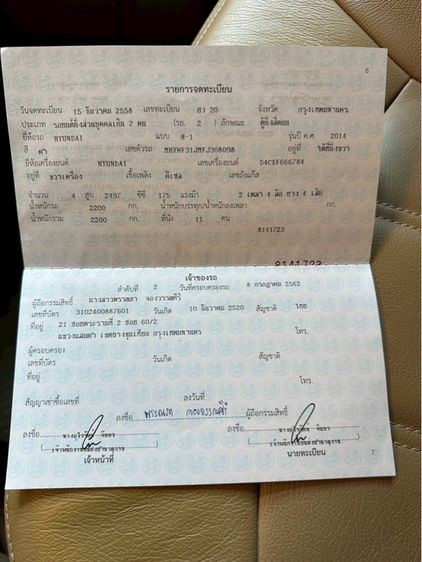 6
รายการจดทะเบียน
วันจดทะเบียน 15 ธันวาคม 2558 เลขทะเบียน ฮว 20 จังหวัด กรุงเทพมหานคร
ประเภท รถยนต์นั่งส่วนบุคคลเกิน 7 คน (รย. 2 ) ลักษณะ ตู้นั่งสี่ตอน
ยี่ห้อรถ HYUNDAI แบบ H-1 รุ่นปี ค.ศ. 2014
สี ดำ เลขตัวรถ อยู่ที่ ใต้ที่นั่งขวา
ยี่ห้อเครื่องยนต์ HYUNDAI เลขเครื่องยนต์ D4CBF666784
อยู่ที่ ขวาเครื่อง เชื้อเพลิง ดีเซล เลขถังแก๊ส
จำนวน 4 สูบ 2497 ซีซี 175 แรงม้า 2 เพลา 4 ล้อ ยาง 4 เส้น
น้ำหนักรถ 2200 กก. น้ำหนักบรรทุก/น้ำหนักลงเพลา กก.
น้ำหนักรวม 2200 กก. ที่นั่ง 11 คน
8141723
8141723
เจ้าของรถ
ลำดับที่ 2 วันที่ครอบครองรถ 8 กรกฎาคม 2562
ผู้ถือกรรมสิทธิ์ นางสาว
เลขที่บัตร 3102400887601 วันเกิด 10 ธันวาคม 2520 สัญชาติ ไทย
ที่อยู่ 21 ซอยพระรามที่ 2 ซอย 60/2
แขวงแสมดำ เขตบางขุนเทียน กรุงเทพมหานคร โทร.
ผู้ครอบครอง
เลขที่บัตร วันเกิด สัญชาติ
ที่อยู่
โทร.
สัญญาเช่าซื้อเลขที่ ลงวันที่
ลงชื่อ ผู้ถือกรรมสิทธิ์
ลงชื่อ ลงชื่อ
เจ้าหน้าที่ นายทะเบียน
7